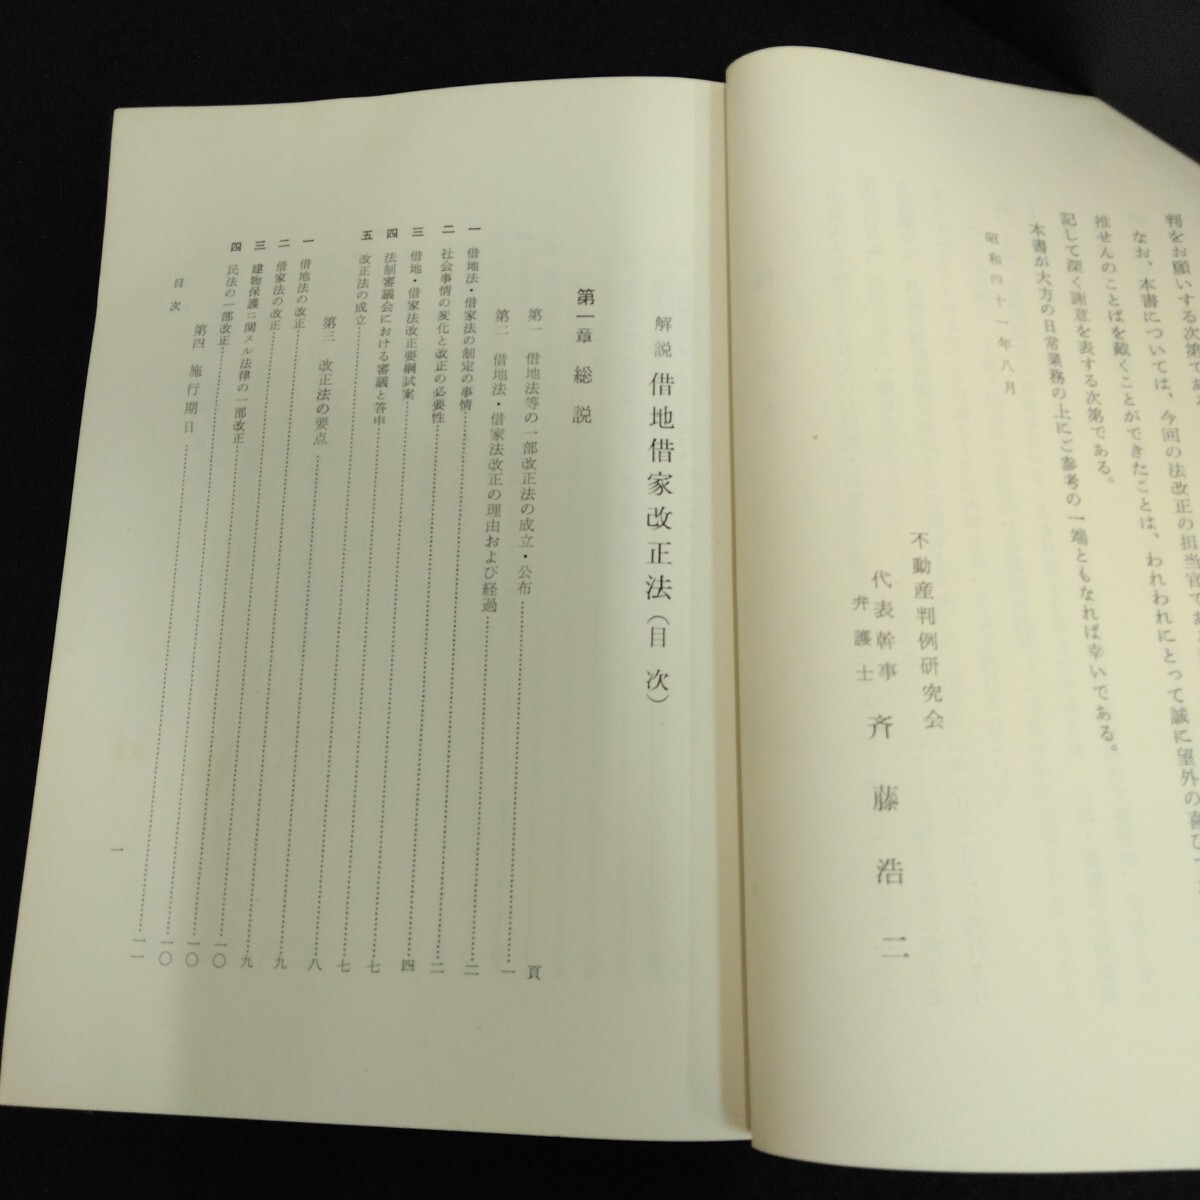 判をお願いする次第である
なお、本書については、今回の法改正の担当官であ
推せんのことばを戴くことができたことは、われわれにとって誠に望外の喜び
記して深く謝意を表する次第である。
本書が大方の日常業務の上にご参考の一端ともなれば幸いである。
昭和四十一年八月
不動産判例研究会
代表幹事
弁護士
斉藤浩二
解説 借地借家改正法(目次)
頁
第一章 総説
第一 借地法等の一部改正法の成立・公布……一
第二 借地法・借家法改正の理由および経過……二
一 借地法・借家法の制定の事情……二
二 社会事情の変化と改正の必要性……四
三 借地・借家法改正要綱試案……七
四 法制審議会における審議と答申……七
五 改正法の成立……八
第三 改正法の要点……九
一 借地法の改正……九
二 借家法の改正……一〇
三 建物保護ニ関スル法律の一部改正……一〇
四 民法の一部改正……一〇
第四 施行期日……一一
目次
一